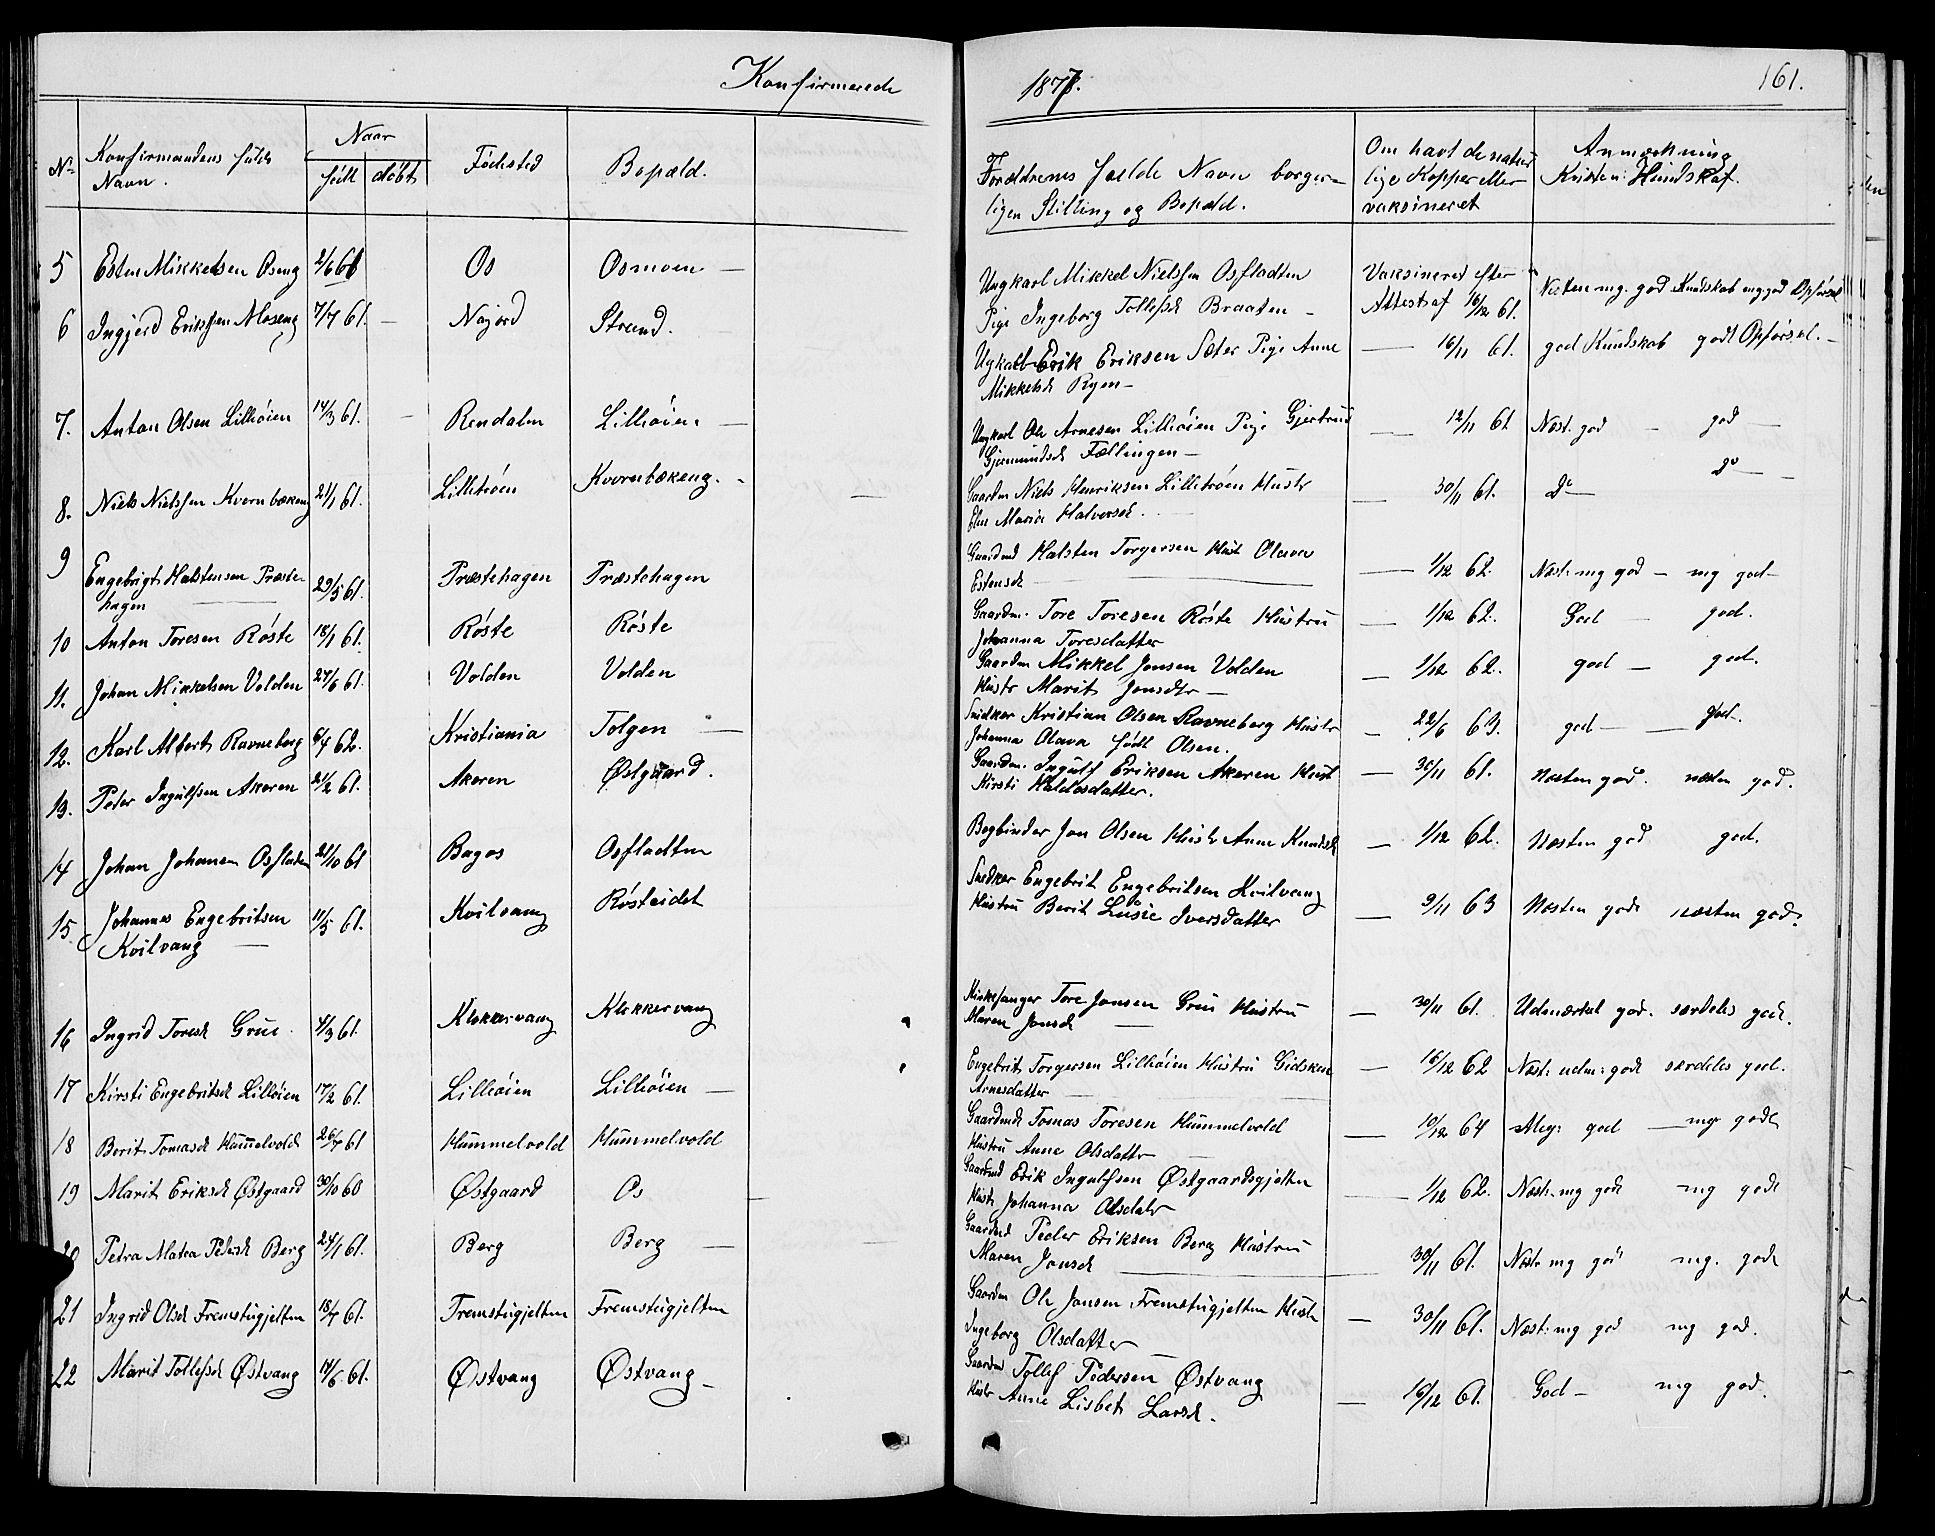 Konfirmerede
1877.
161.
No Konfirmandens fulde Navn. Naar født døbt Fødested Bopæld.
Forældrenes fuelde Navn borger-
ligen Stilling og Bopæld.
Om havt de natur
lige Kopper eller
vaksineret
Anmærkning
Kristen: Kundskaf.
5 Esten Mikkelsen Oseng 2/6 61 Os Osmoen —
Ungkarl Mikkel Nielsen Osfladten
Pige Ingeborg Tollefsd Braaten —
Vaksinered efter
Attest af 16/12 61.
Næsten mg. god Kundskab mg god Opførsel
6 Ingjerd Eriksen Moseng 7/7 61. — Nøjord Strand.
Ugkarl Erik Eriksen Sæter Pige Anne
Mikkelsd Ryen —
— 16/11 61. god Kundskab godt Opførsel. —
7. Anton Olsen Lilleøien 14/3 61. — Rendalen Lilleøien —
Ungkarl Ole Arnesen Lilleøien Pige Gjertrud
Gjermundsd Fællingen —
— 12/11 61. Næst. god — god —
8. Niels Nielsen Kvernbækeng 21/1 61. Lilletrøen Kvernbækeng. —
Gaardm Niels Henriksen Lilletrøen Hustr
Else Maria Halversd. —
— 30/11 61. Do — Do —
9 Engebrigt Halstensen Præste-
hagen — 29/5 61. Præstehagen Præstehagen
Gaardmd Halsten Torgersen Hust Olava
Estensd —
— 1/12 62. Næst: mg god — mg god —
10 Anton Toresen Røste 18/1 61. Røste Røste
Gaardm. Tore Toresen Røste Hustru
Johanna Toresdatter
— 1/12 62. God — god.
11. Johan Mikkelsen Volden 27/6 61. Volden Volden
Gaardm Mikkel Jonsen Volden
Hustr Marit Jonsdtr —
— 1/12 62. god — god.
12. Karl Albert Ravneberg 6/4 62. Kristiania Tolgen —
Snidker Kristian Olsen Ravneberg Hustr
Johanna Olava født Olsen.
— 22/6 63. god — god.
13. Peder Ingulfsen Akeren 21/2 61. Akeren Østgaard.
Gaardm. Ingulf Eriksen Akeren Hust
Kirsti Haldosdatter.
— 30/11 61. Næsten god. næsten god.
14 Johan Johansen Osfladen 21/10 61 Bagos Osfladten
Bogbinder Jon Olsen Hustr Anne Knudsd
— 1/12 62. Næsten god god.
15. Johannes Engebritsen
Kvilvang — 11/5 61. Kvilvang Røsteidet
Snedker Engebrit Engebritsen Kvilvang
Hustru Berit Lusie Iversdatter
— 9/11 63 Næsten gode næsten gode
16 Ingrid Toresd Grue. 4/3 61. Klokkervang Klokkervang
Kirkesanger Tore Jonsen Grue Hustru
Maren Jonsd —
— 30/11 61. Udmærket god. særdeles god.
17 Kirsti Engebritsd Lilleøien 17/2 61. Lilleøien Lilleøien —
Engebrit Torgersen Lilleøien Hustru Gidsken
Arnesdatter —
— 16/12 62 Næst: udm: gode særdeles god.
18 Berit Tomasd Hummelvold 26/7 61 Hummelvold Hummelvold
Gaardmd Tomas Toresen Hummelvold
Hustru Anne Olsdattr —
— 10/12 64 Meg: god — mg gode
19 Marit Eriksd Østgaard 30/10 60 Østgaard Os —
Gaardmd Erik Ingulfsen Østgaardsgjelten
Hustr Johanna Olsdatr
— 1/12 62. Næst: mg gode mg gode
20 Petra Matea Pedersd Berg 24/1 61. Berg Berg —
Gaardmd Peder Eriksen Berg Hustru
Maren Jonsd —
30/11 61. Næst: mg god mg. gode
21 Ingrid Olsd Fremstugjelten 18/7 61. Fremstugjelten Fremstugjelten
Gaardm Ole Jonsen Fremstugjelten Hustr
Ingeborg Olsdatter —
— 30/11 61. Næst: mg god mg god.
22 Marit Tollefsd Østvang 14/6 61. Østvang Østvang —
Gaardmd Tollef Pedersen Østvang
Hustr Anne Lisbet Larsd.
— 16/12 61. God — mg god.